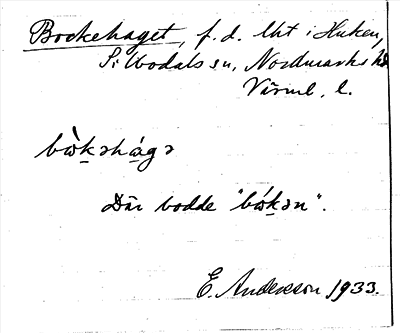 Bockehaget, f.d. lht i Huken,
Silbodals sn, Nordmarks hd
Värml. l.
bὼkəhágə
Där bodde "bώkən".
E. Anderson 1933.